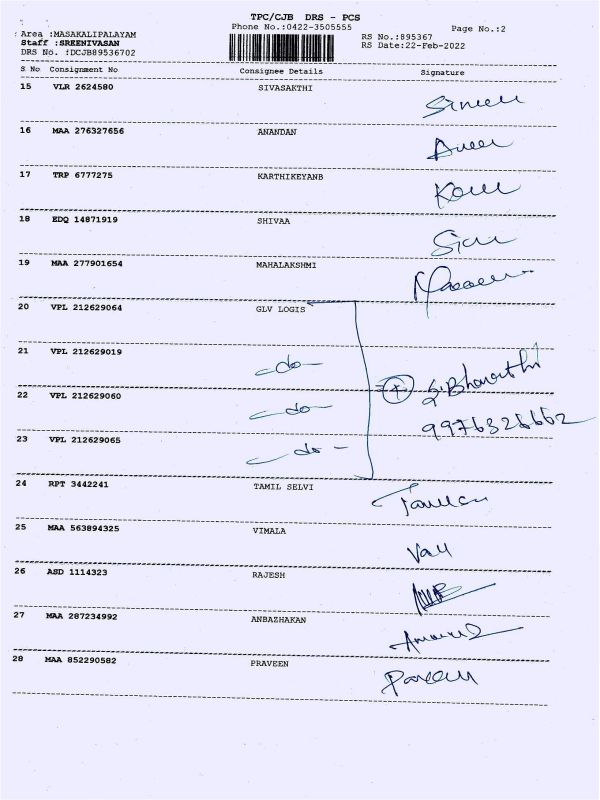 TPC/CJB DRS - PCS
Phone No.:0422-3505555
Page No.:2
Area :MASAKALIPALAYAM
RS No.:895367
Staff :SREENIVASAN
RS Date:22-Feb-2022
DRS No. :DCJB89536702
S No Consignment No Consignee Details Signature
15 VLR 2624580 SIVASAKTHI
16 MAA 276327656 ANANDAN
17 TRP 6777275 KARTHIKEYANB
18 EDQ 14871919 SHIVAA
19 MAA 277901654 MAHALAKSHMI
20 VPL 212629064 GLV LOGIS
21 VPL 212629019 -do-
S. Bharathi
22 VPL 212629060 -do-
9976328662
23 VPL 212629065 -do-
24 RPT 3442241 TAMIL SELVI
25 MAA 563894325 VIMALA
26 ASD 1114323 RAJESH
27 MAA 287234992 ANBAZHAKAN
28 MAA 852290582 PRAVEEN